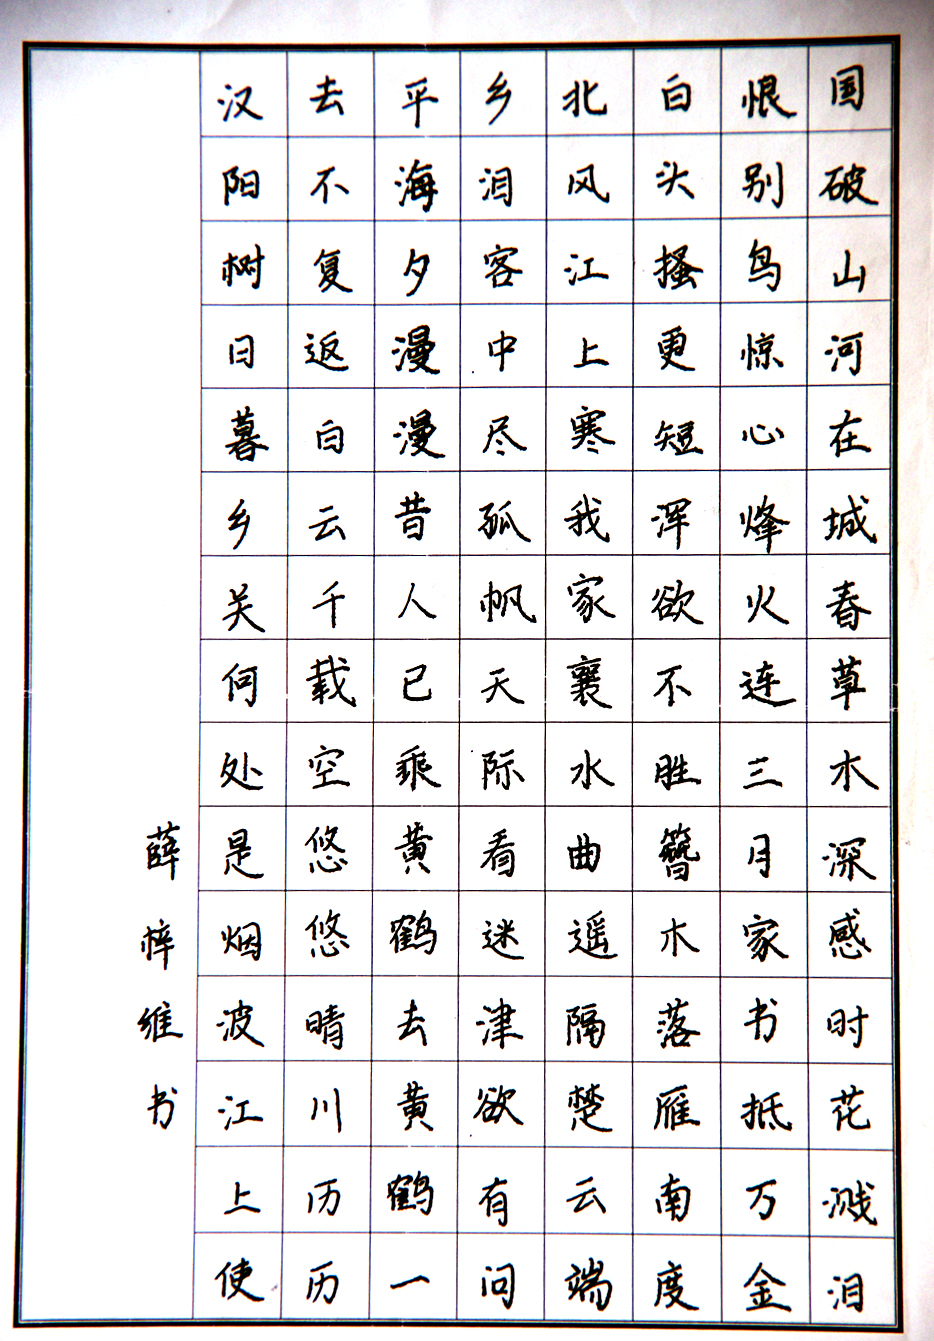 国破山河在城春草木深感时花溅泪
恨别鸟惊心烽火连三月家书抵万金
白头搔更短浑欲不胜簪木落雁南度
北风江上寒我家襄水曲遥隔楚云端
乡泪客中尽孤帆天际看迷津欲有问
平海夕漫漫昔人已乘黄鹤去黄鹤一
去不复返白云千载空悠悠晴川历历
汉阳树日暮乡关何处是烟波江上使
薛梓维书